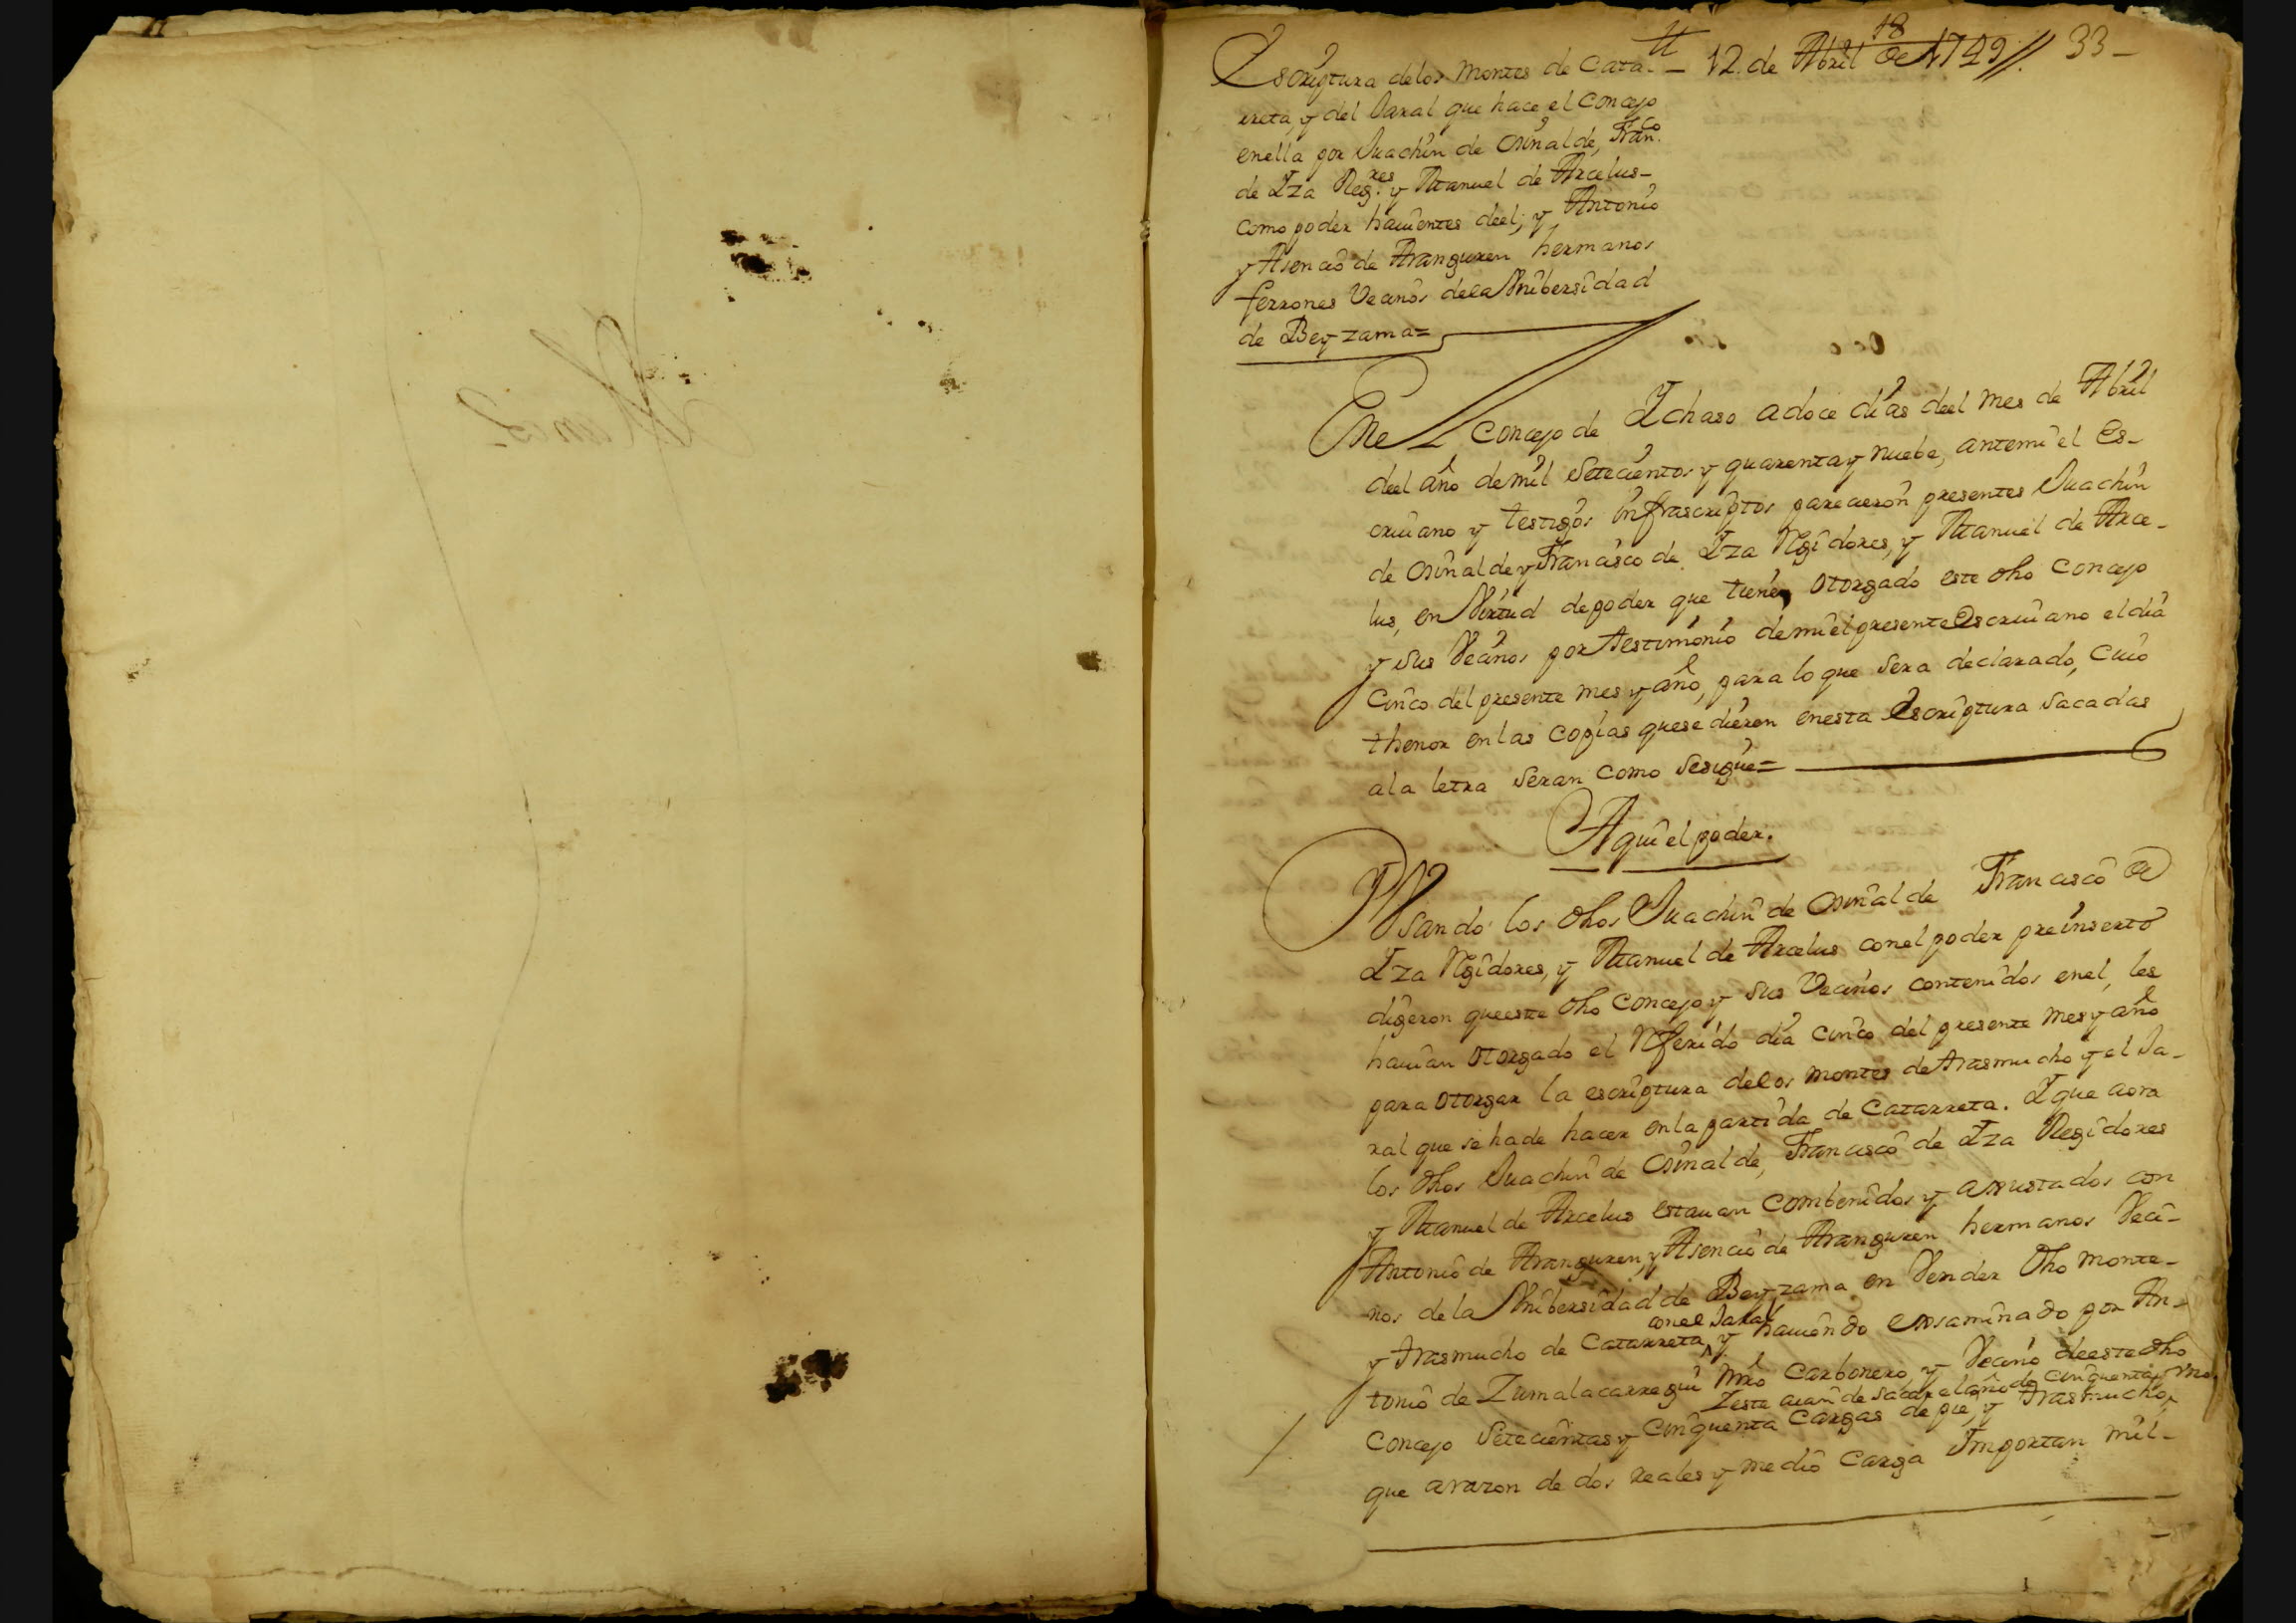 Escriptura delos Montes de Cata- 12 de Abril de 1749 //. 33-
rreta, y del Jaral que hace el Concejo
enella por Juachin de Osinalde, Fran.co
de Yza Reg.res y Manuel de Arcelus-
como poder hauientes deel; y Antonio
y Asencio de Aranguren hermanos
ferrones Vecinos dela Vnibersidad
de Beyzama=
Enel Concejo de Ychaso adoce dias deel mes de Abril
deel año de mil Setecientos y quarenta y nuebe, antemi el Es-
criuano y testigos infrascriptos parecieron presentes Juachin
de Osinalde y Francisco de Yza Rgidores, y Manuel de Arce-
lus, en Virtud de poder que tienen otorgado este dho Concejo
y sus Vecinos por testimonio de mi el presente Escriuano el dia
Cinco del presente mes y año, para lo que sera declarado, Cuio
thenor en las Copias que se dieren enesta Escriptura sacadas
ala letra seran como sesigue=
Aqui el poder.
Vsando los dhos Juachin de Osinalde Francisco de
Yza Rgidores, y Manuel de Arcelus conel poder preinserto
digeron queeste dho Concejo y sus Vecinos contenidos enel, les
hauian otorgado el Rferido dia cinco del presente mes y año
para otorgar la escriptura delos montes de trasmucho y el Ja-
ral que se ha de hacer en la partida de Catarreta. Y que aora
los dhos Juachin de Osinalde, Francisco de Yza Regidores
y Manuel de Arcelus estauan combenidos y ajustados con
Antonio de Aranguren, y Asencio de Aranguren hermanos Veci-
nos de la Vnibersidad de Beyzama en Vender dho monte-
conel Jaral
y trasmucho de Catarreta, y hauiendo exsaminado por An-
tonio de Zumalacarregui Mro Carbonero, y Vecino deeste dho
de sacar el año de cinquenta y Vno
Concejo Setecientas y Cinquenta Cargas de pie, y trasmucho,
que arazon de dos reales y medio Carga Importan mil-